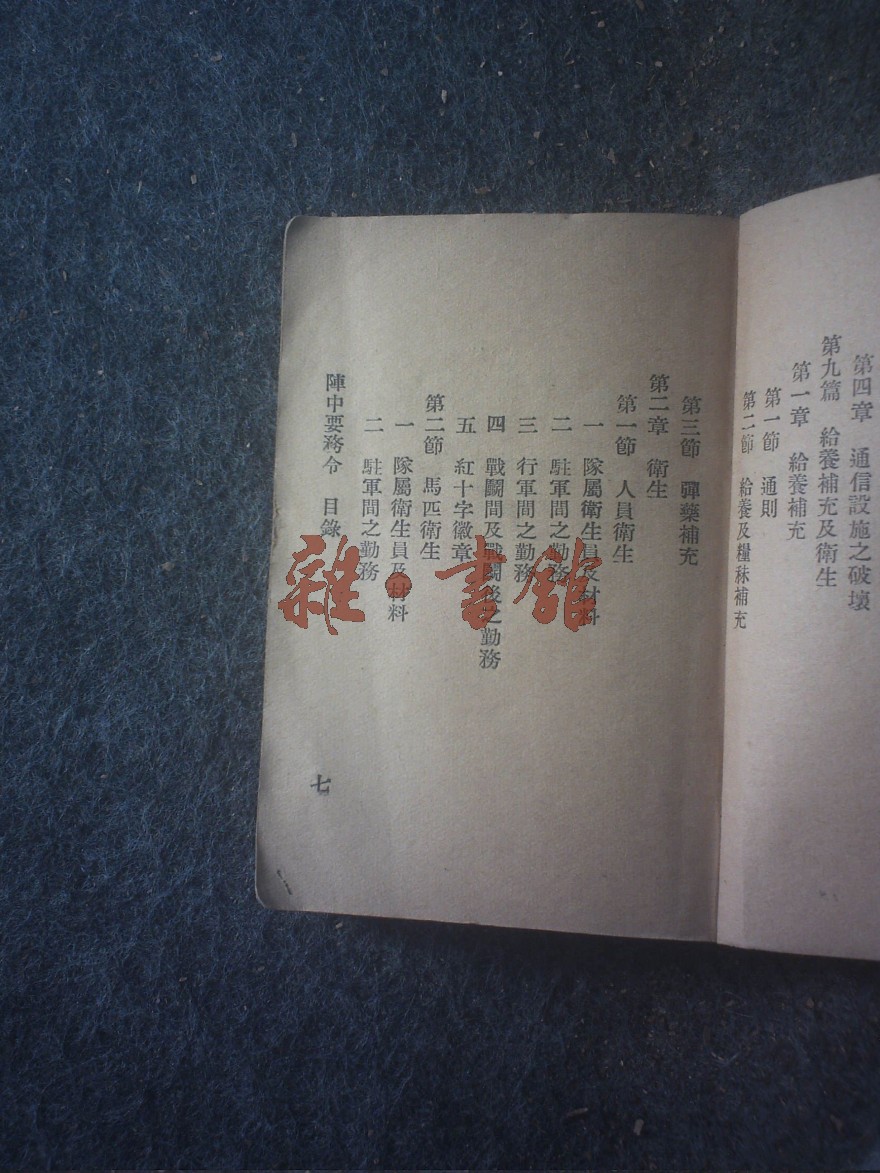 第四章　通信設施之破壞
第九篇　給養補充及衛生
第一章　給養補充
第一節　通則
第二節　給養及糧秣補充
第三節　彈藥補充
第二章　衛生
第一節　人員衛生
一　隊屬衛生員及材料
二　駐軍間之勤務
三　行軍間之勤務
四　戰鬭間及戰鬭後之勤務
五　紅十字徽章
第二節　馬匹衛生
一　隊屬衛生員及材料
二　駐軍間之勤務
陣中要務令　目錄
七
雜·書館